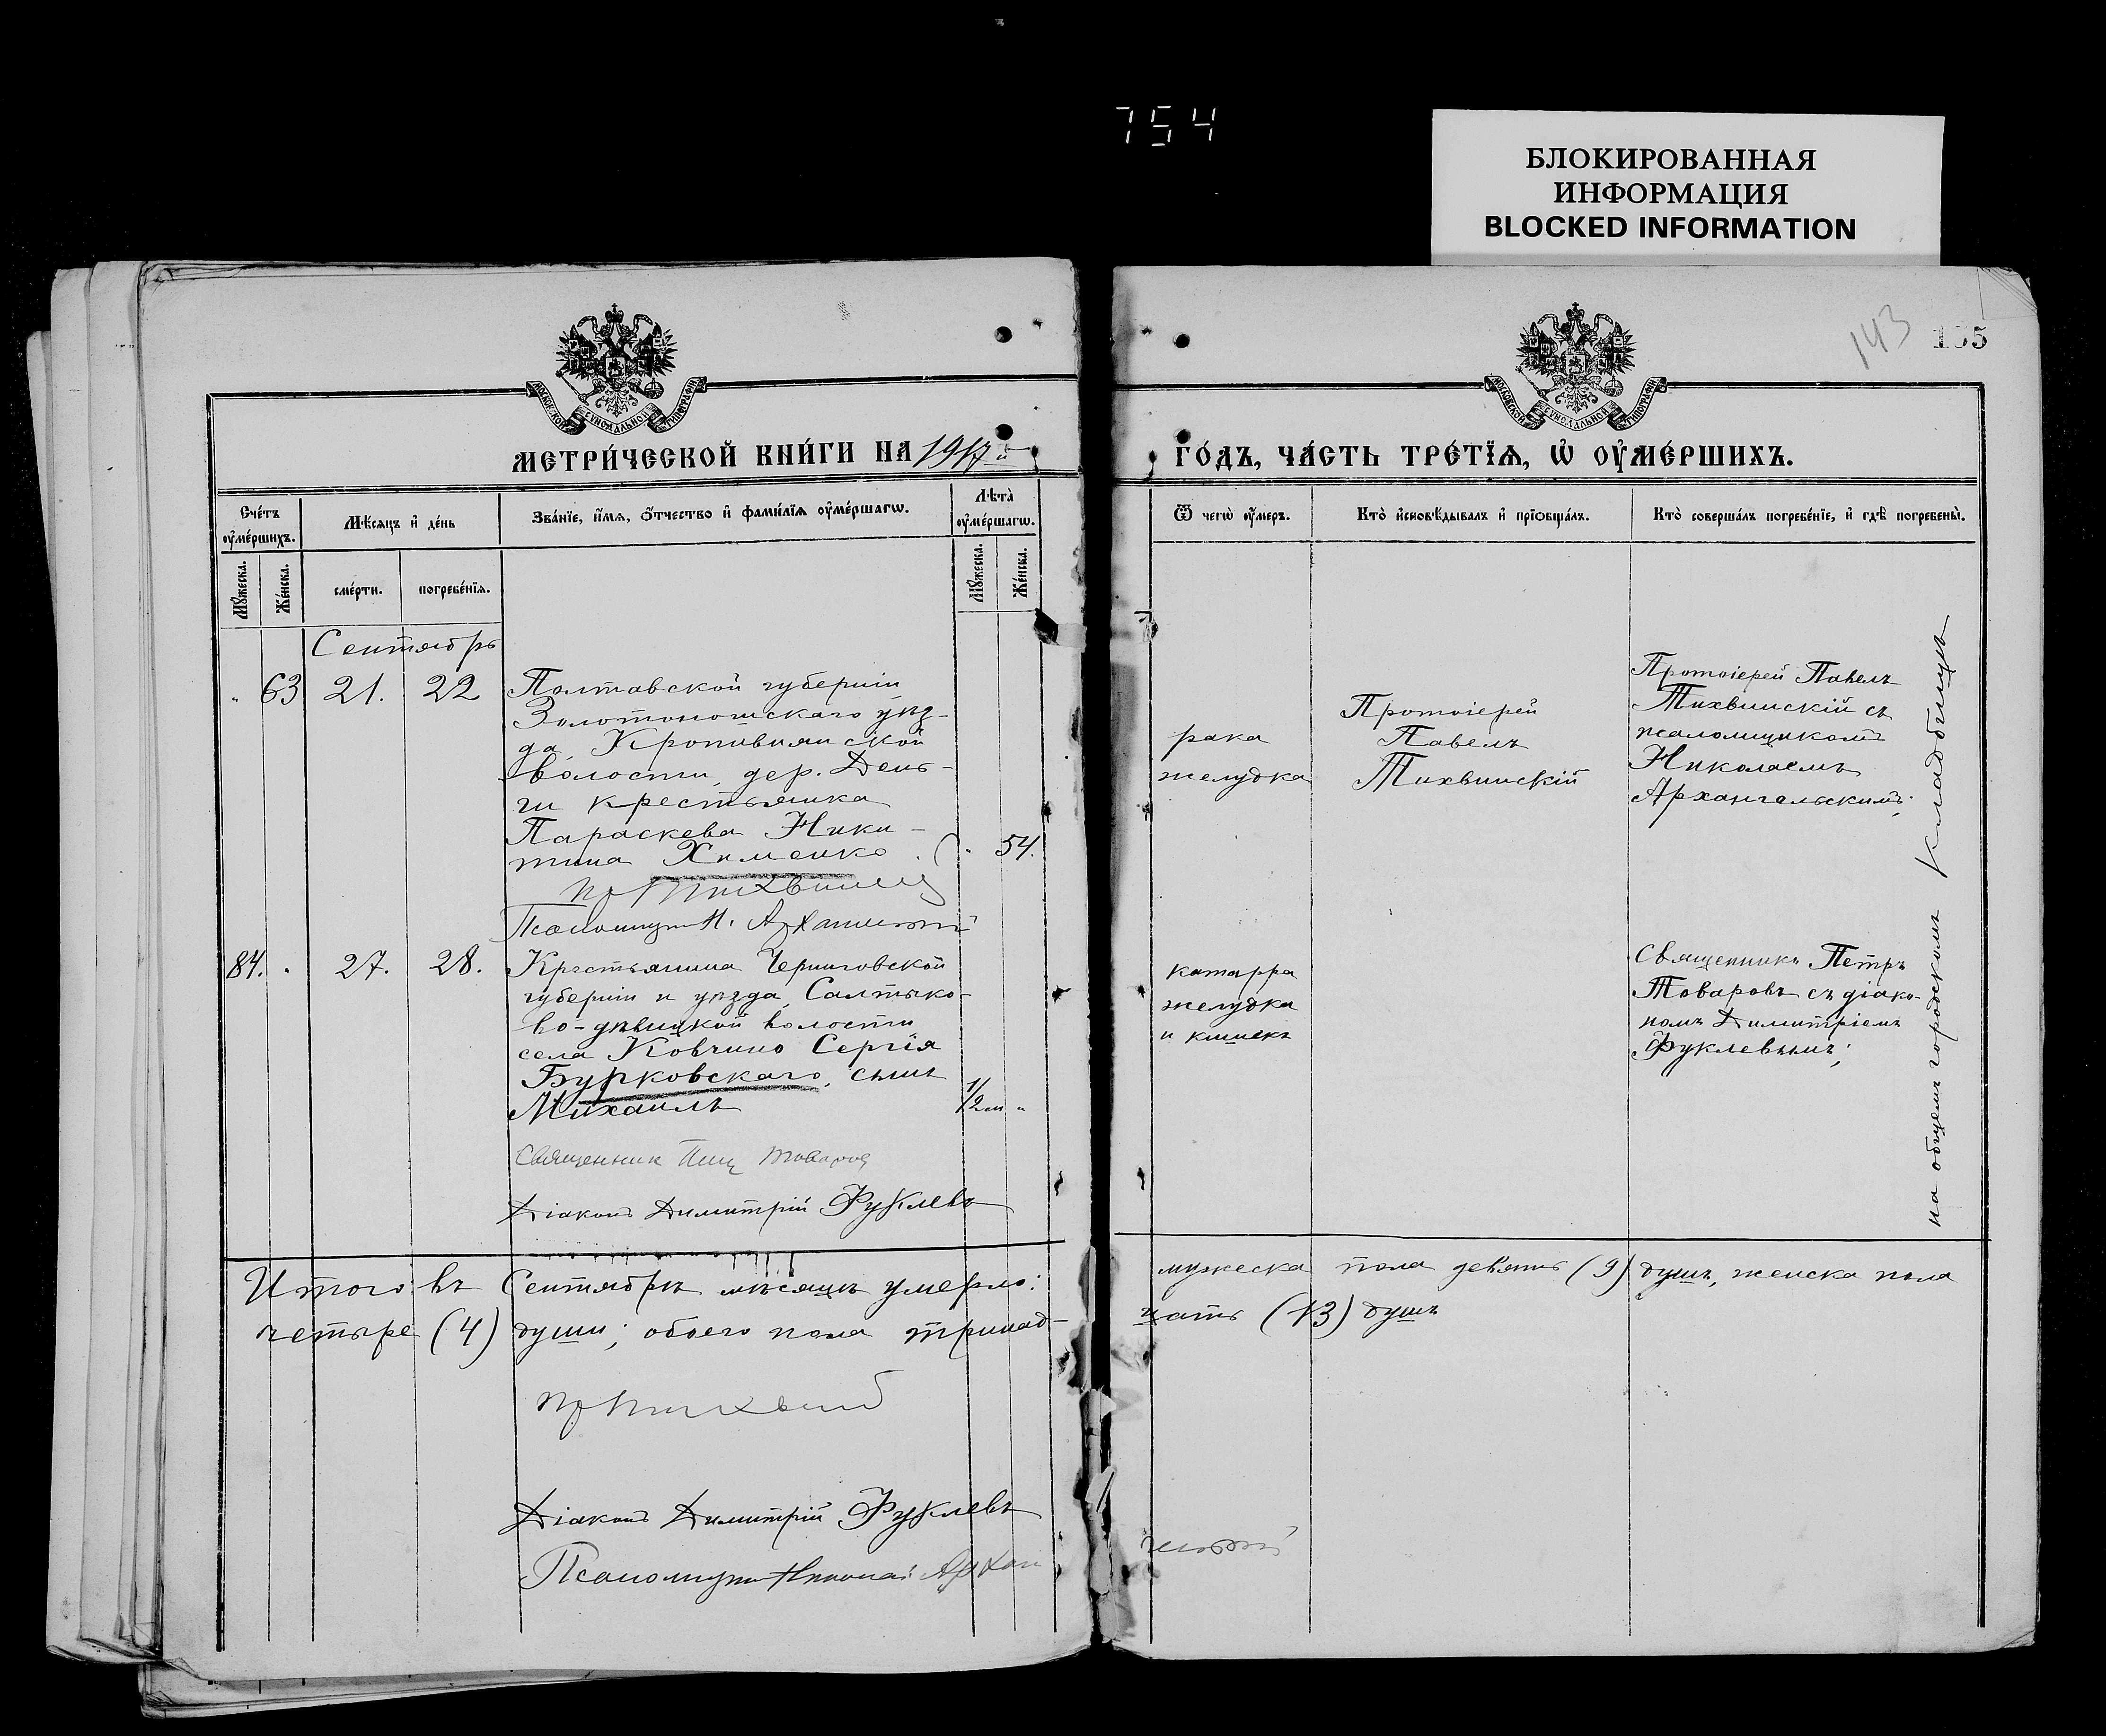 754
БЛОКИРОВАННАЯ
ИНФОРМАЦИЯ
BLOCKED INFORMATION
143
МОСКОВСКОЙ СУНОДАЛЬНОЙ ТИПОГРАФІИ
МОСКОВСКОЙ СУНОДАЛЬНОЙ ТИПОГРАФІИ
МЕТРИ́ЧЕСКОЙ КНИ́ГИ НА 1917й
ГО́ДЪ, ЧА́СТЬ ТРЕ́ТЇѦ, Ѡ҆ ОУ҆МЕ́РШИХЪ.
Сче́тъ
оу҆ме́ршихъ.
Мꙋ́жеска.
Же́нска.
Мѣ́сяцъ и҆ де́нь
сме́рти.
погребе́нїѧ.
Зва́нїе, и҆́мѧ, ѻ҆́тчество и҆ фами́лїѧ оу҆ме́ршагѡ.
Лѣта̀
оу҆ме́ршагѡ.
Мꙋ́жеска.
Же́нска.
Ѿ чегѡ̀ оу҆́меръ.
Кто̀ и҆сповѣ́дывалъ и҆ прїѡбща́лъ.
Кто̀ соверша́лъ погребе́нїе, и҆ гдѣ̀ погребены̀.
Сентябрь
" 63 21. 22
Полтавской губерніи
Золотоношскаго уѣз-
да, Кропивянской
волости, дер. День-
ги крестьянка
Параскева Ники-
тина Хименко . " 54.
Псаломщикъ Н. Архангельскій
рака
желудка
Протоіерей
Павелъ
Тихвинскій
Протоіерей Павелъ
Тихвинскій съ
псаломщикомъ
Николаемъ
Архангельскимъ;
84. " 27. 28.
Крестьянина Черниговской
губерніи и уѣзда, Салтыко-
во-дѣвицкой волости
села Ковчино Сергія
Бурковскаго, сынъ
Михаилъ 1/2 м "
Священник Петр Товаров
Діаконъ Димитрій Фуклевъ
катарра
желудка
и кишекъ
Священникъ Петръ
Товаровъ съ діако-
номъ Димитріемъ
Фуклевымъ;
на общемъ городскомъ кладбищѣ
Итого въ Сентябрѣ мѣсяцѣ умерло: мужеска пола девять (9) душъ, женска пола
четыре (4) души; обоего пола тринад-цать (13) душъ
Діаконъ Димитрій Фуклевъ
Псаломщикъ Николай Архангельскій